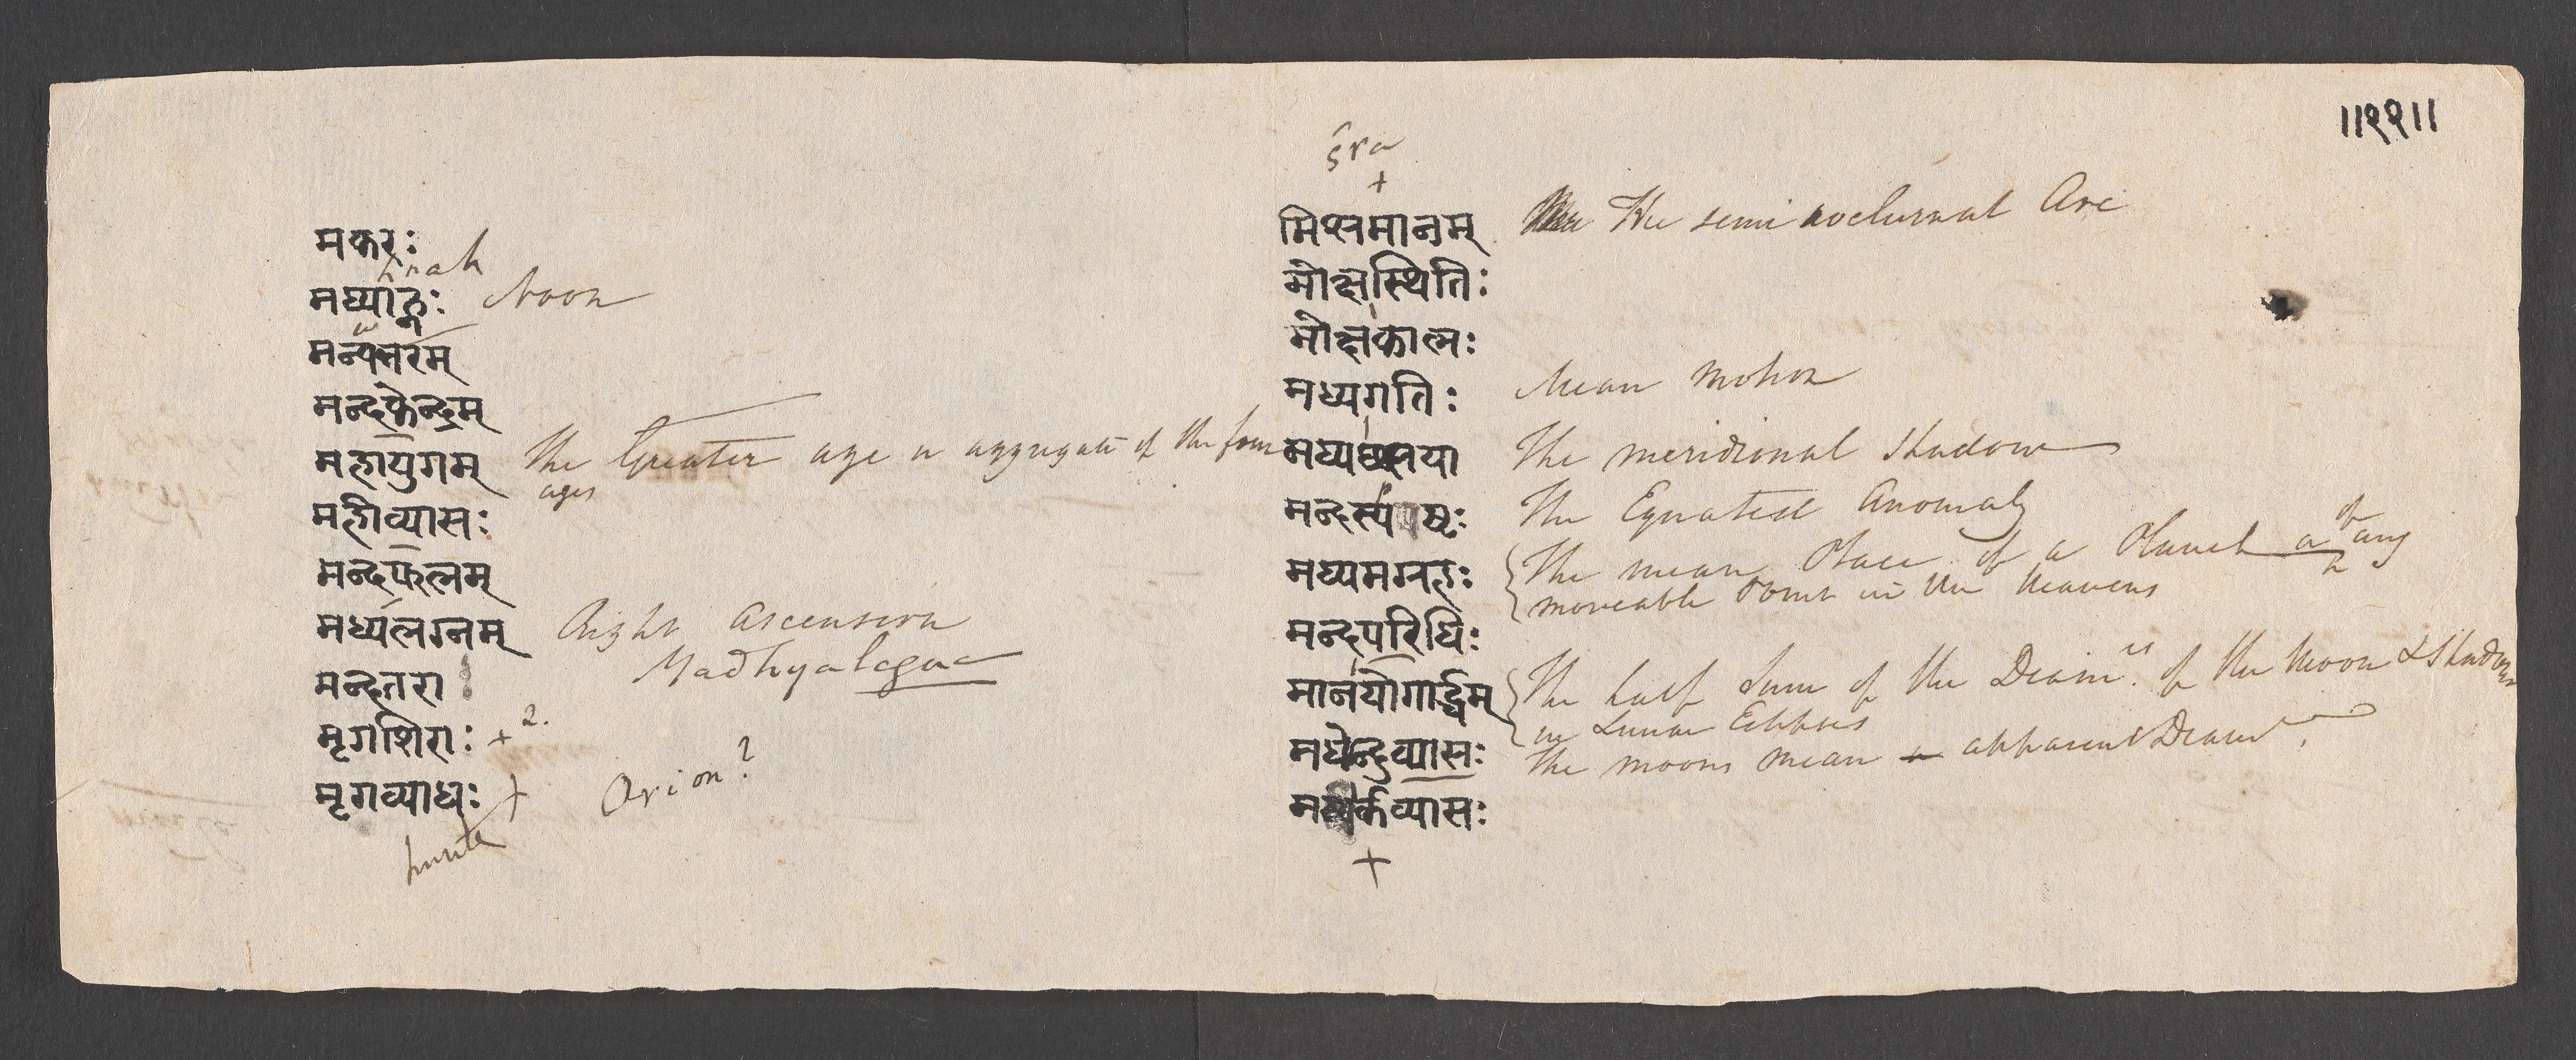 ॥११॥
मकरः
hnah
मध्याह्नः Noon
मन्वन्तरम्
मन्दकेन्द्रम्
महायुगम् The Greater age or aggregate of the four
ages
महीव्यासः
मन्दफलम्
मध्यलग्नम् Right Ascension
Madhyalagna
मन्दतरा
मृगशिराः +2.
मृगव्याधः + Orion?
sra
+
मिश्रमानम् The semi nocturnal Arc
मोक्षस्थितिः
मोक्षकालः
मध्यगतिः Mean motion
मध्यछाया The meridional Shadow
मन्दस्पष्टः The Equated Anomaly
मध्यमग्रहः The mean Place of a Planet or of any
moveable point in the Heavens
मन्दपरिधिः
मानयोगार्द्धम् The half Sum of the Diam.rs of the Moon & Shadow
in Lunar Eclipses
मध्येन्दुव्यासः The moons mean apparent Diamr.
मध्यर्कव्यासः
+